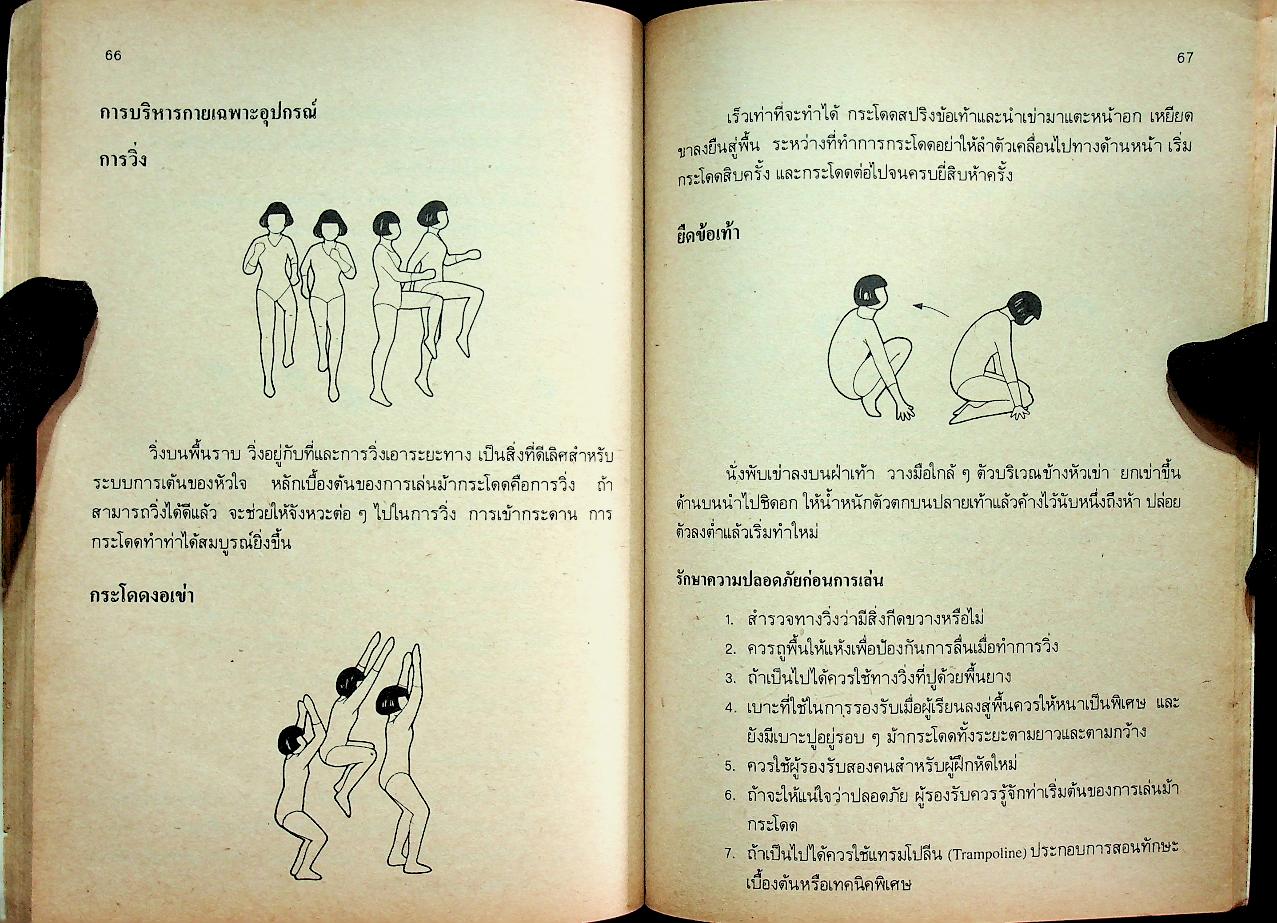 66
การบริหารกายเฉพาะอุปกรณ์
การวิ่ง
วิ่งบนพื้นราบ วิ่งอยู่กับที่และการวิ่งเอาระยะทาง เป็นสิ่งที่ดีเลิศสำหรับ
ระบบการเต้นของหัวใจ หลักเบื้องต้นของการเล่นม้ากระโดดคือการวิ่ง ถ้า
สามารถวิ่งได้ดีแล้ว จะช่วยให้จังหวะต่อ ๆ ไปในการวิ่ง การเข้ากระดาน การ
กระโดดทำท่าได้สมบูรณ์ยิ่งขึ้น
กระโดดงอเข่า
67
เร็วเท่าที่จะทำได้ กระโดดสปริงข้อเท้าและนำเข่ามาแตะหน้าอก เหยียด
ขาลงยืนสู่พื้น ระหว่างที่ทำการกระโดดอย่าให้ลำตัวเคลื่อนไปทางด้านหน้า เริ่ม
กระโดดสิบครั้ง และกระโดดต่อไปจนครบยี่สิบห้าครั้ง
ยืดข้อเท้า
นั่งพับเข่าลงบนฝ่าเท้า วางมือใกล้ ๆ ตัวบริเวณข้างหัวเข่า ยกเข่าขึ้น
ด้านบนนำไปชิดอก ให้น้ำหนักตัวตกบนปลายเท้าแล้วค้างไว้นับหนึ่งถึงห้า ปล่อย
ตัวลงต่ำแล้วเริ่มทำใหม่
รักษาความปลอดภัยก่อนการเล่น
1. สำรวจทางวิ่งว่ามีสิ่งกีดขวางหรือไม่
2. ควรถูพื้นให้แห้งเพื่อป้องกันการลื่นเมื่อทำการวิ่ง
3. ถ้าเป็นไปได้ควรใช้ทางวิ่งที่ปูด้วยพื้นยาง
4. เบาะที่ใช้ในการรองรับเมื่อผู้เรียนลงสู่พื้นควรให้หนาเป็นพิเศษ และ
ยังมีเบาะปูอยู่รอบ ๆ ม้ากระโดดทั้งระยะตามยาวและตามกว้าง
5. ควรใช้ผู้รองรับสองคนสำหรับผู้ฝึกหัดใหม่
6. ถ้าจะให้แน่ใจว่าปลอดภัย ผู้รองรับควรรู้จักท่าเริ่มต้นของการเล่นม้า
กระโดด
7. ถ้าเป็นไปได้ควรใช้แทรมโปลีน (Trampoline) ประกอบการสอนทักษะ
เบื้องต้นหรือเทคนิคพิเศษ